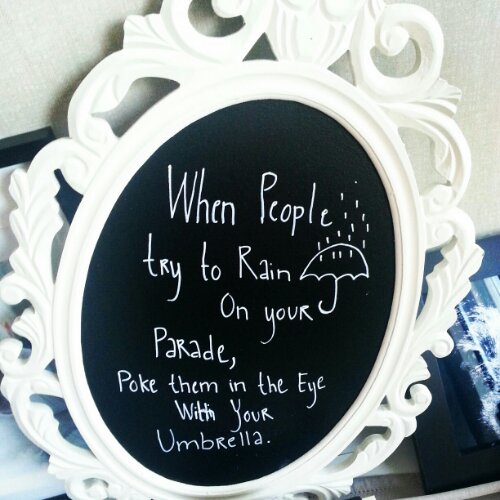 When People
try to Rain
On your
Parade,
Poke them in the Eye
With Your
Umbrella.